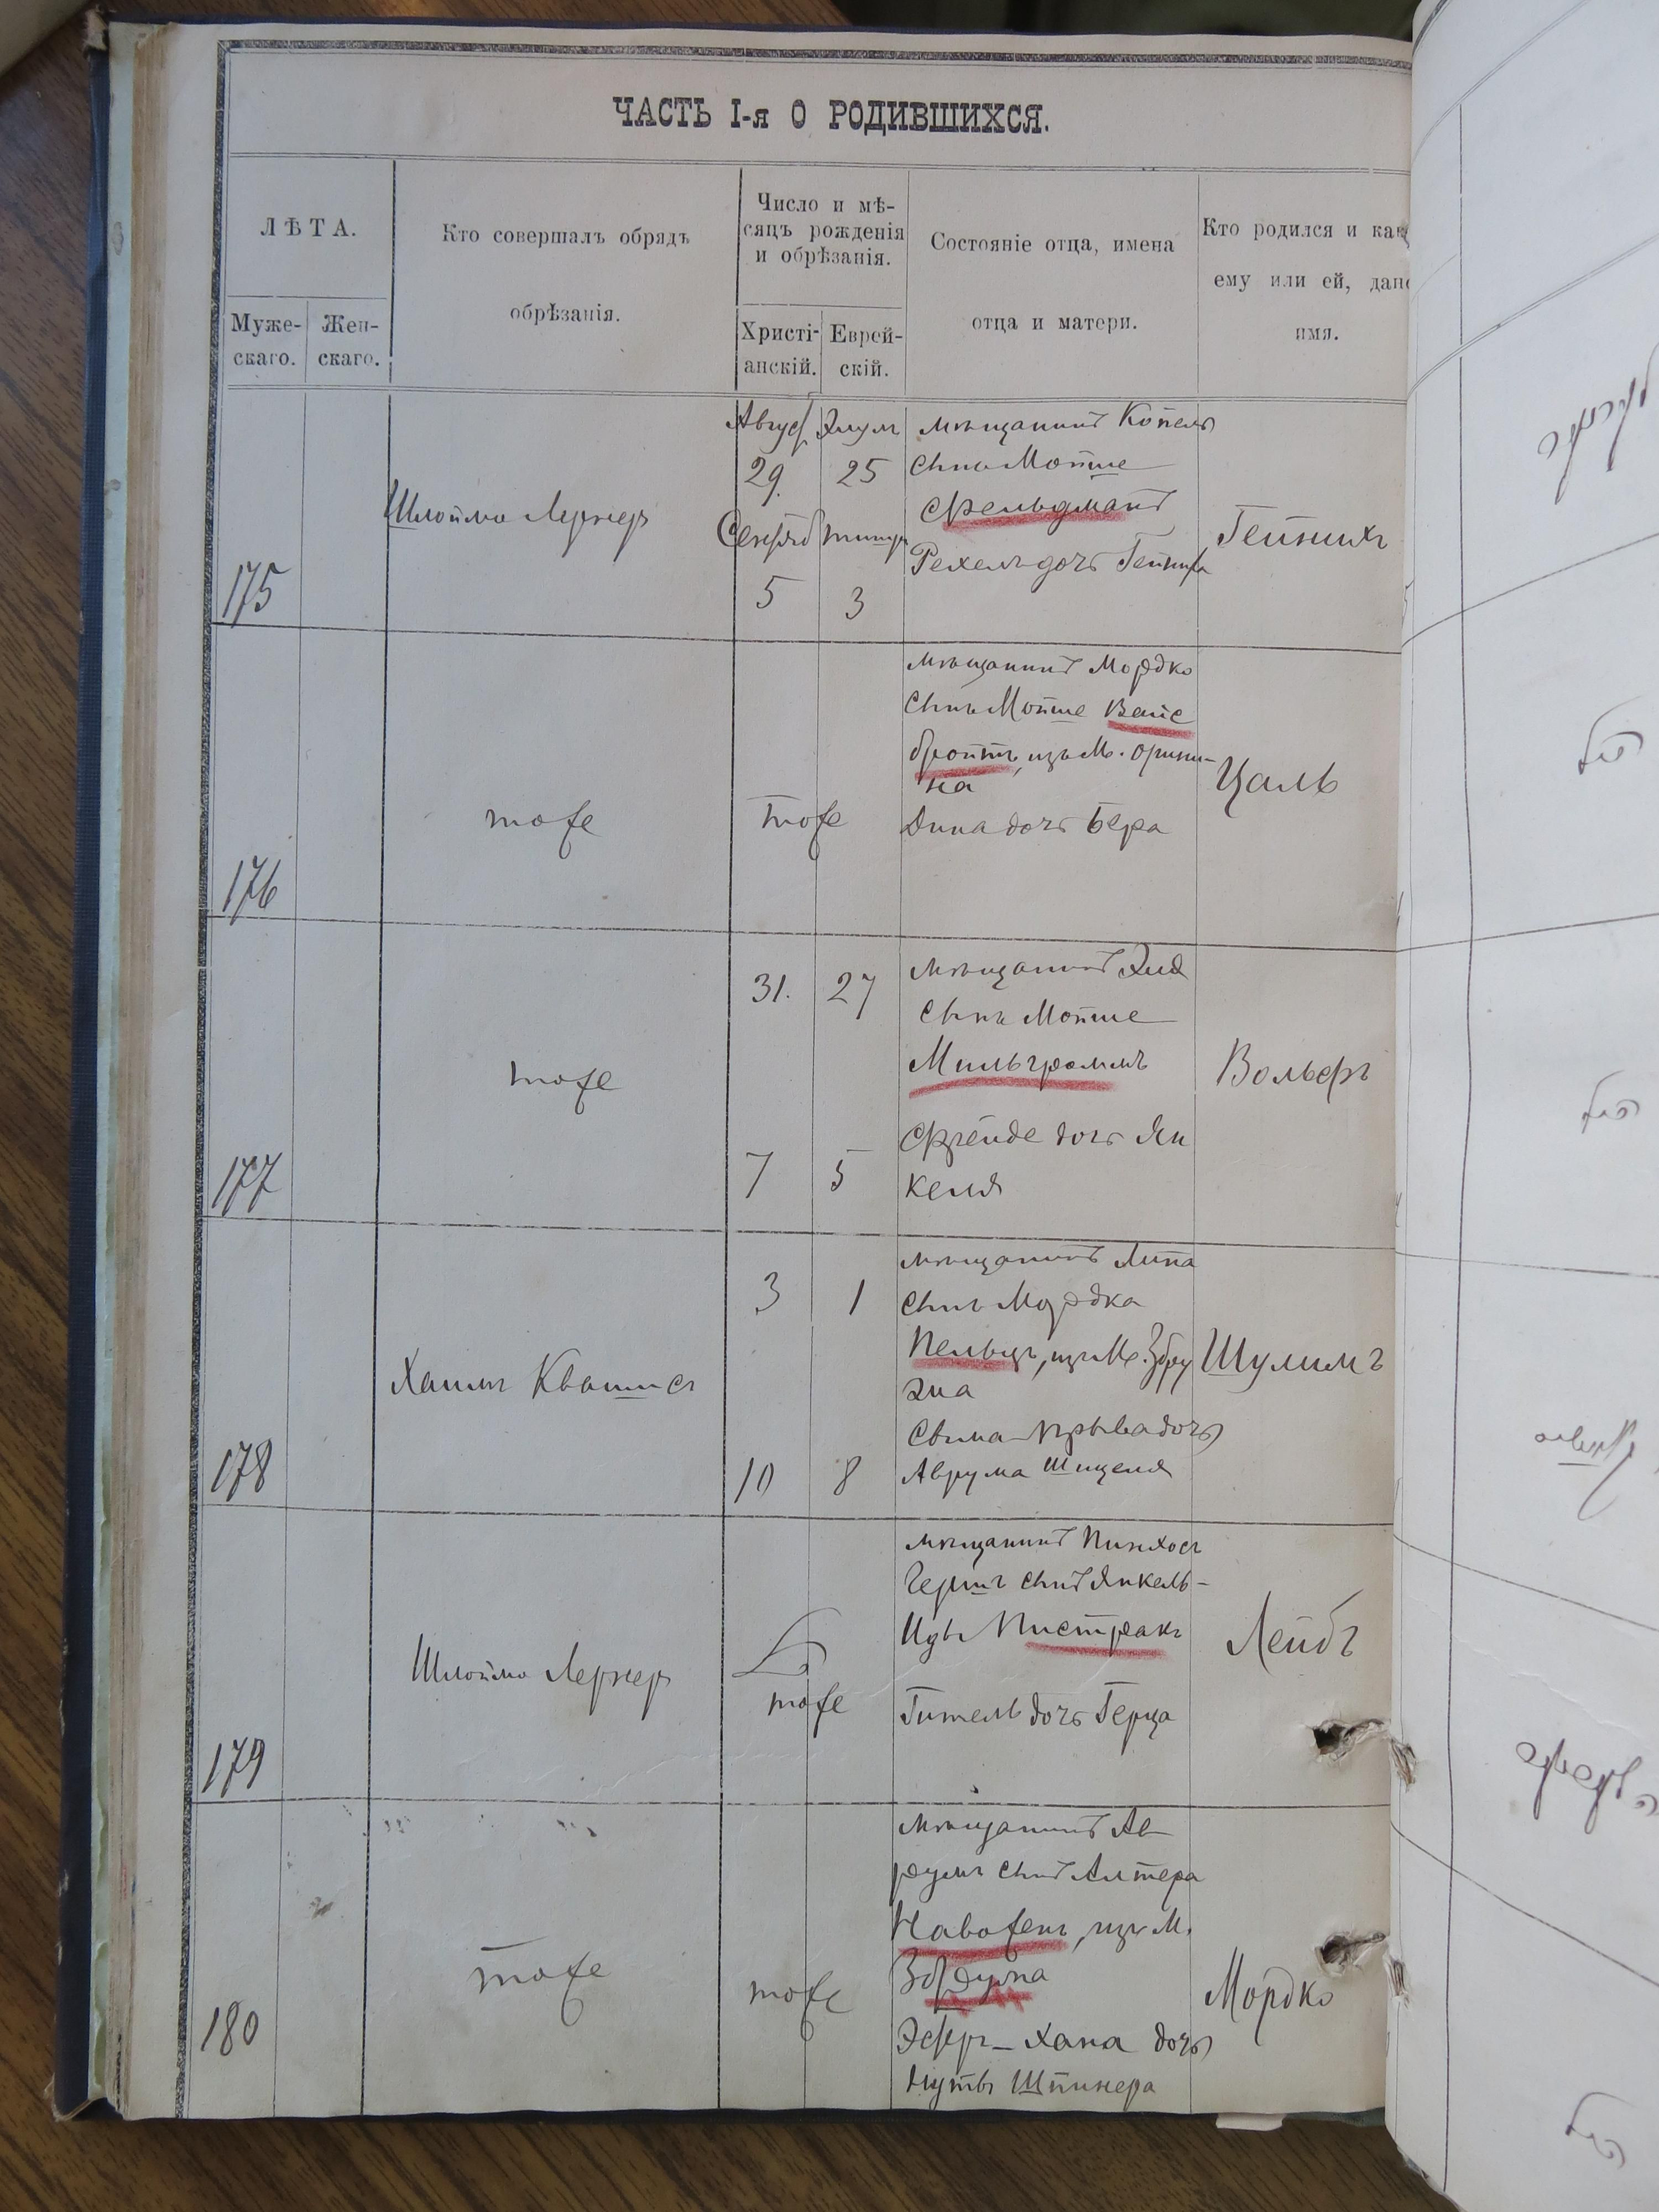 ЧАСТЬ I-я О РОДИВШИХСЯ.
ЛѢТА.
Муже-
скаго.
Жен-
скаго.
Кто совершалъ обрядъ
обрѣзанія.
Число и мѣ-
сяцъ рожденія
и обрѣзанія.
Христі-
анскій.
Еврей-
скій.
Состояніе отца, имена
отца и матери.
Кто родился и как
ему или ей, дано
имя.
175
Шлойма Лернеръ
Август Элул
29. 25
Сентяб тишр
5 3
мѣщанинъ Копель
сынъ Мойше
Фельдманъ
Рехель дочь Гейниха
Гейнихъ
176
тоже
тоже
мѣщанинъ Мордко
сынъ Мойше Вайс
бройтъ, изъ М. Орини-
на
Дина дочь Бера
Цаль
177
тоже
31. 27
7 5
мѣщанинъ Эля
сынъ Мойше
Мильгромъ
Фрейде дочь Ян
келя
Вольфъ
178
Хаимъ Квашис
3 1
10 8
мѣщанинъ Липа
сынъ Мордка
Пельцъ, изъ М. Збру
Сима-Крыва дочь
Аврума
Шулимъ
179
Шлойма Лернеръ
тоже
мѣщанинъ Пинхосъ
Гершъ сынъ Янкель-
Иды Пистракъ
Гитель дочь Герца
Лейбъ
180
тоже
тоже
мѣщанинъ Ав-
румъ сынъ Алтера
изъ М.
Эсфръ-Хана дочь
Нуты Шпинера
Мордко